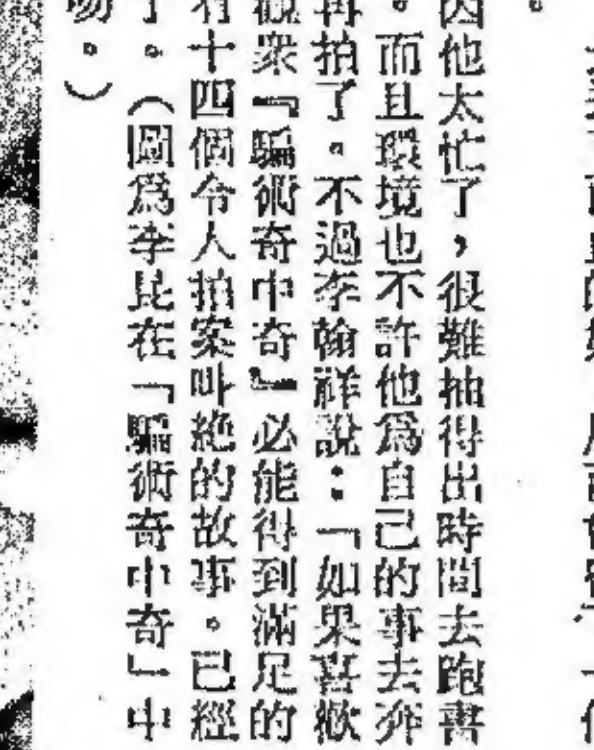 。
因他太忙了，很難抽得出時間去跑書
。而且環境也不許他爲自己的事去奔
再拍了。不過李翰祥說：「如果喜歡
觀衆『騙術奇中奇』必能得到滿足的
有十四個令人拍案叫絶的故事。已經
了。（圖爲李昆在「騙術奇中奇」中
吻。）